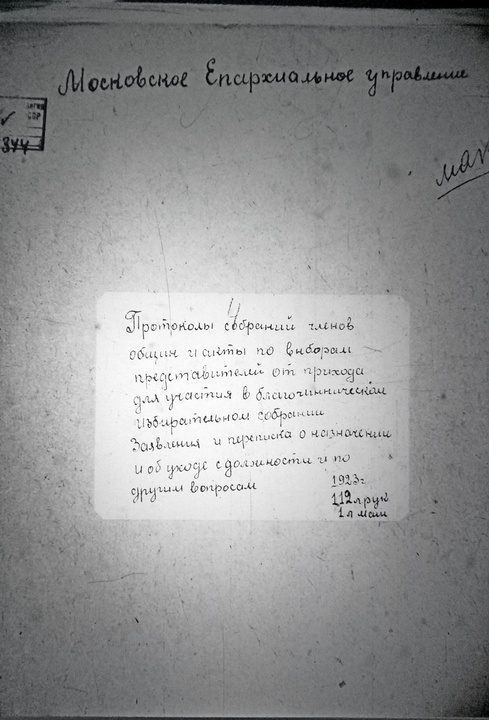 Московское Епархиальное управление
844
4
Протоколы собраний членов
общин и акты по выборам
представителей от прихода
для участия в благочинническом
избирательном собрании
Заявления и переписка о назначении
и об уходе с должности и по
другим вопросам
1923г
112 л рук
1 л маш